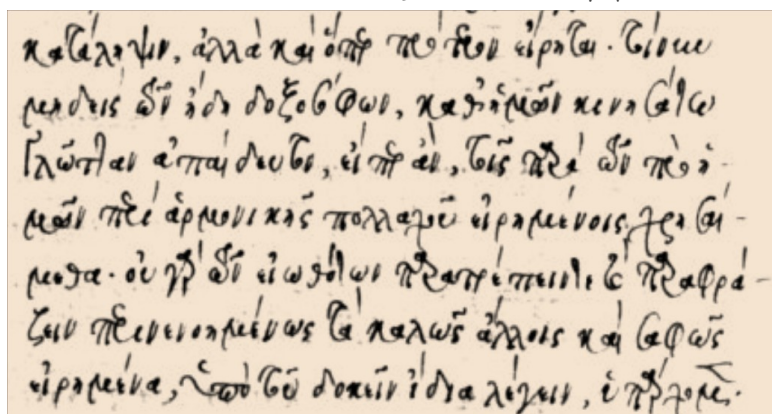 κατάληψιν, ἀλλὰ καὶ ὅπερ πρότερον εἴρηται.
μηδεὶς τῶν ἤδη δοξοσόφων, καθ' ἡμῶν κινησάτω
γλῶτταν ἀπαίδευτον, εἴπερ ἂν, τοῖς παρὰ τῶν πρὸ ἡ-
μῶν περὶ ἁρμονικῆς πολλαχοῦ εἰρημένοις χρησαί-
μεθα. οὐ γὰρ τῶν εἰωθότων παρατρέπειν τε καὶ παραφρά-
ζειν περινενοημένως τὰ καλῶς ἄλλοις καὶ σαφῶς
εἰρημένα, ὑπὸ τοῦ δοκεῖν ἴδια λέγειν, ὑπάρχομεν.